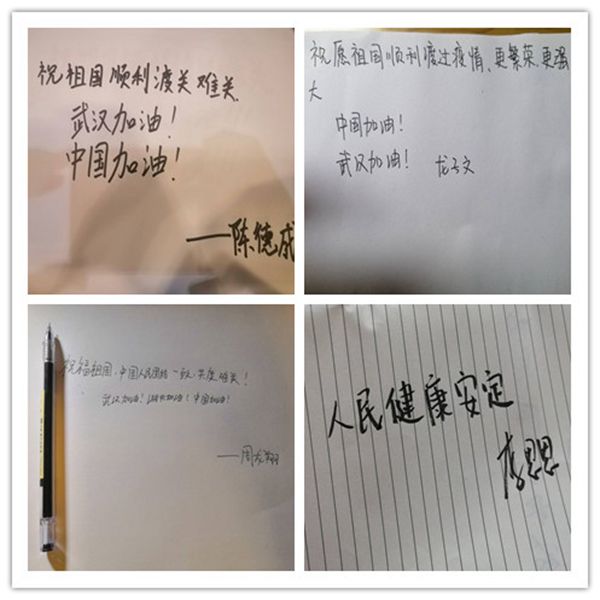 祝祖国顺利渡关难关.
武汉加油!
中国加油!
——陈德成
祝愿祖国顺利渡过疫情、更繁荣.更强
大
中国加油!
武汉加油! 龙子文
祝福祖国,中国人民团结一致,共度难关!
武汉加油!湖北加油!中国加油!
——周龙翔
人民健康安定
李思思